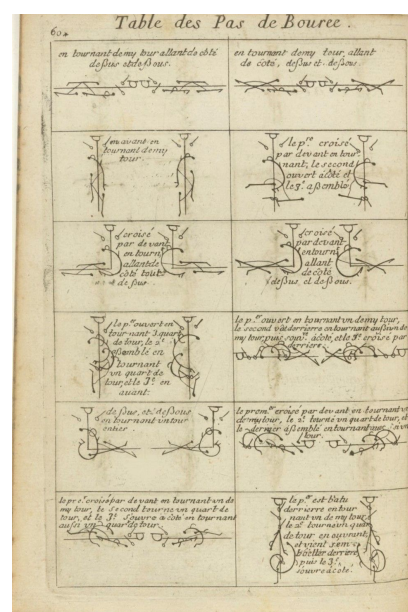 Table des Pas de Bouree.
60.
en tournant demy tour allant de côté
dessus et dessous.
en tournant demy tour, allant
de côté, dessus et dessous.
en avant en
tournant demy
tour.
le p.er croisé
par devant en tour
nant, le second
ouvert acôté et
le 3.e assemblé
croisé
par devant
en tourn
allant de
côté tout
de sus
croisé
par devant
en tourn
allant
de côté
dessus, et dessous.
le p.er ouvert en
tournant 3. quart
de tour, le 2.e
assemblé en
tournant
vn quart de
tour, et le 3.e en
avant.
le p.er ouvert en tournant vn demy tour,
le second derriere en tournant aussi vn de
my tour, puis acôté, et le 3.e croisé par
derriere
dessus, et dessous
en tournant vn tour
le prem.er croisé par devant en tournant vn
demy tour, le 2.e tourné vn quart de tour, et
le dernier assemblé en tournant
tour
le pre.er croisé par devant en tournant vn de
my tour, le second tourne vn quart de
tour, et le 3.e s'ouvre a côté en tournant
aussi vn quar de tour.
le p.er est Batu
derriere en tour
nant vn demy tour
le 2.e tourna vn quar
de tour en ouvrant
et vient
derriere
puis le 3.e
souvre acôté.